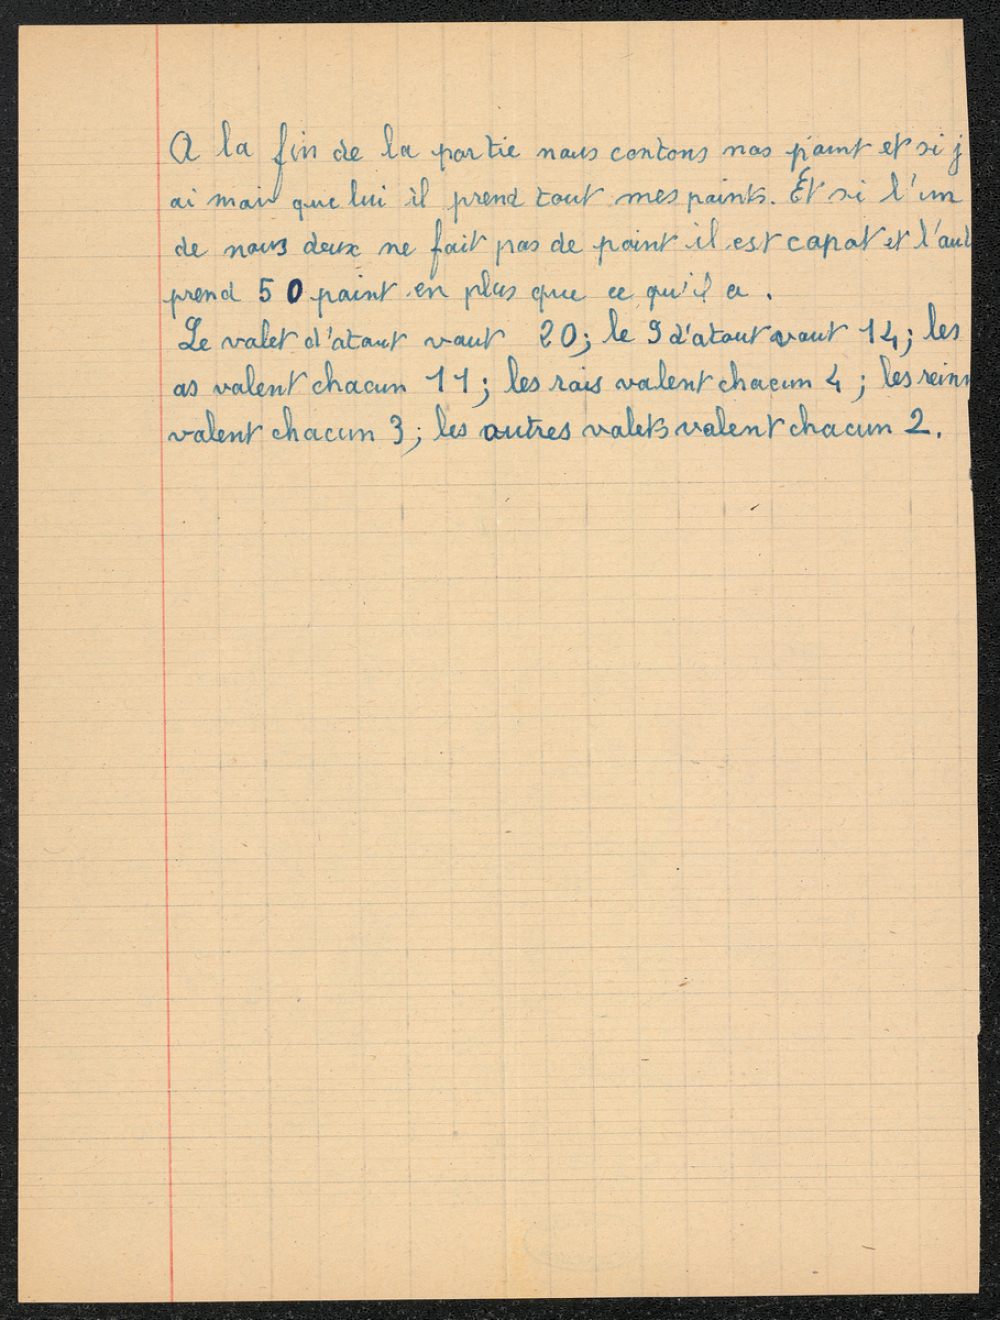 A la fin de la partie nous contons nos point et si j
ai main que lui il prend tout mes points. Et si l'un
de nous deux ne fait pas de point il est capot et l'aut
prend 50 point en plus que ce qu'il a.
Le valet d'atout vaut 20; le 9 d'atout vaut 14; les
as valent chacun 11; les rois valent chacun 4; les rein
valent chacun 3; les autres valets valent chacun 2.